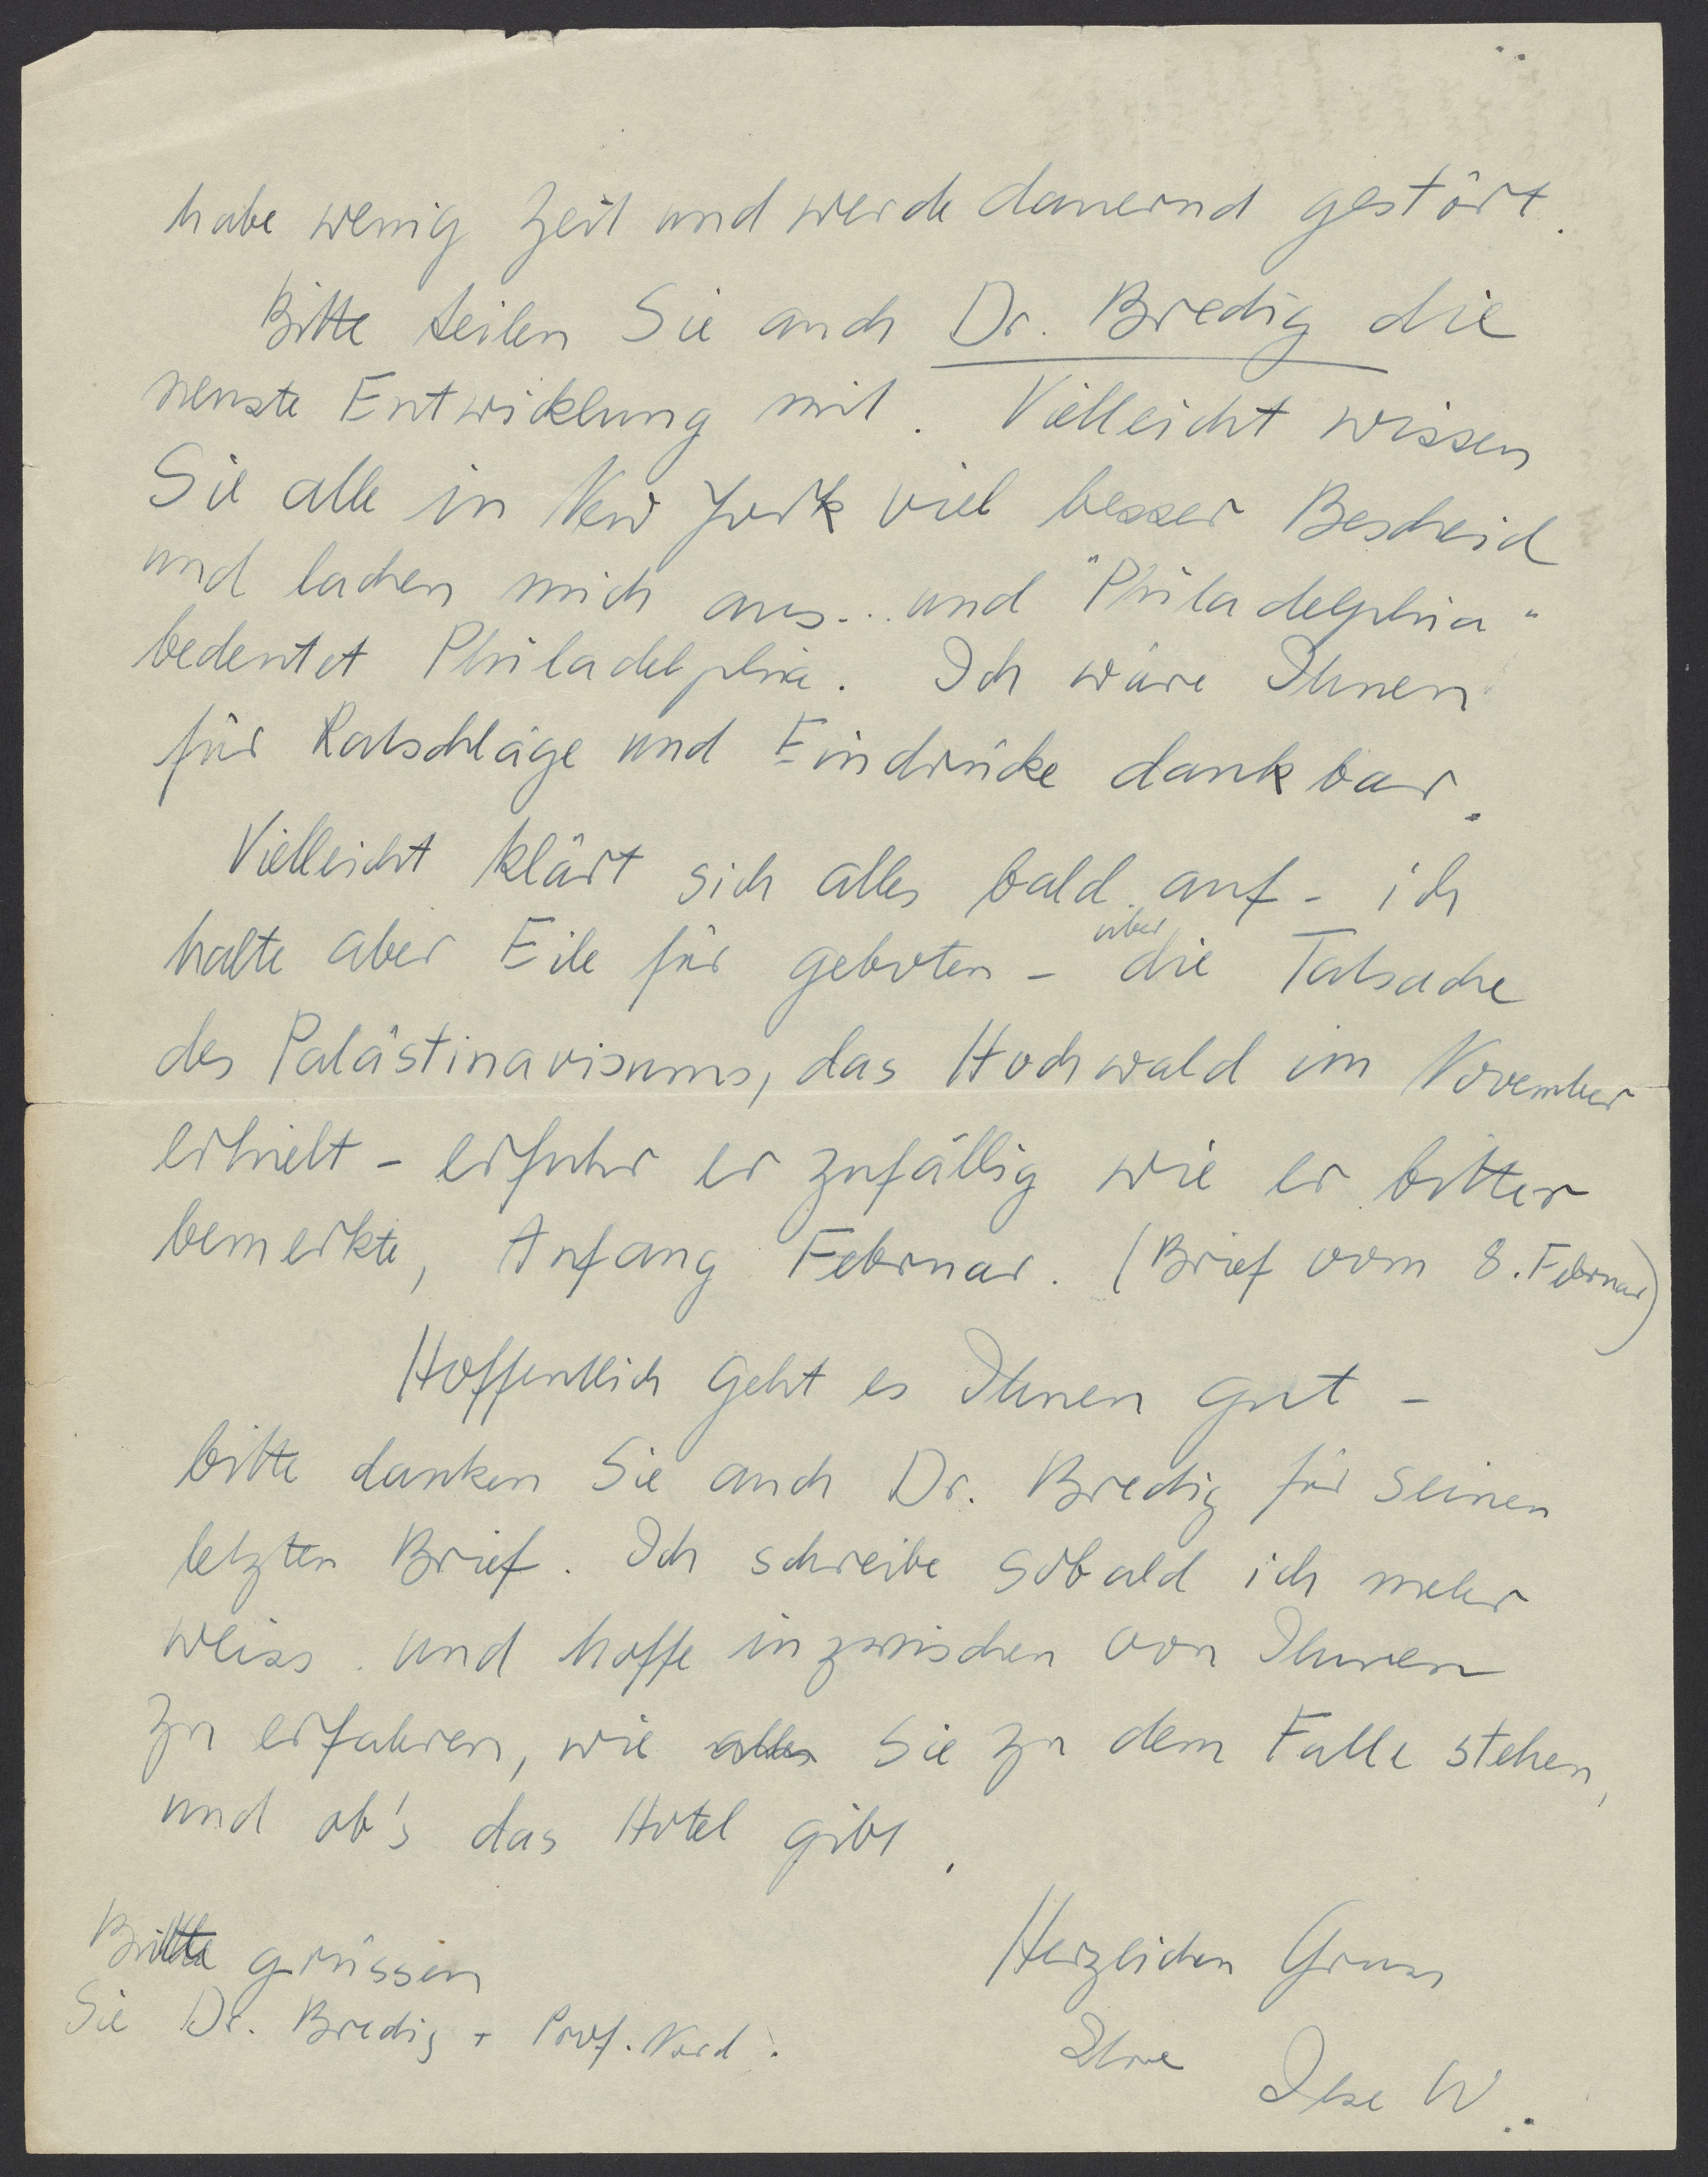 habe wenig Zeit und werde dauernd gestört.
Bitte teilen Sie auch Dr. Bredig die
neuste Entwicklung mit. Vielleicht wissen
Sie alle in New York viel besser Bescheid
und lachen mich aus... und "Philadelphia"
bedeutet Philadelphia. Ich wäre Ihnen
für Ratschläge und Eindrücke dankbar.
Vielleicht klärt sich alles bald auf - ich
halte aber Eile für geboten - über die Tatsache
des Palästinavisums, das Hochwald im November
erhielt - erfuhr er zufällig wie er bitter
bemerkte, Anfang Februar. (Brief vom 8. Februar)
Hoffentlich geht es Ihnen gut -
bitte danken Sie auch Dr. Bredig für seinen
letzten Brief. Ich schreibe sobald ich mehr
weiss. und hoffe inzwischen von Ihnen
zu erfahren, wie alles Sie zu dem Falle stehen,
und ob's das Hotel gibt.
Herzlichen Gruss
Ihre Ilse W.
Bitte grüssen
Sie Dr. Bredig + Prof. Nord!